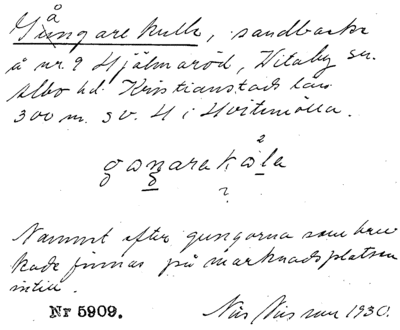 Gångare kulle, sandbacke
å nr. 9 Hjälmaröd, Vitaby sn.
Albo hd. Kristianstads län
300 m. SV. H i Hvitemölla.
Namnt efter gungorna som bru
kade finnas på marknadsplatsen
intill.
Nr 5909. Nils Nilsson 1930.